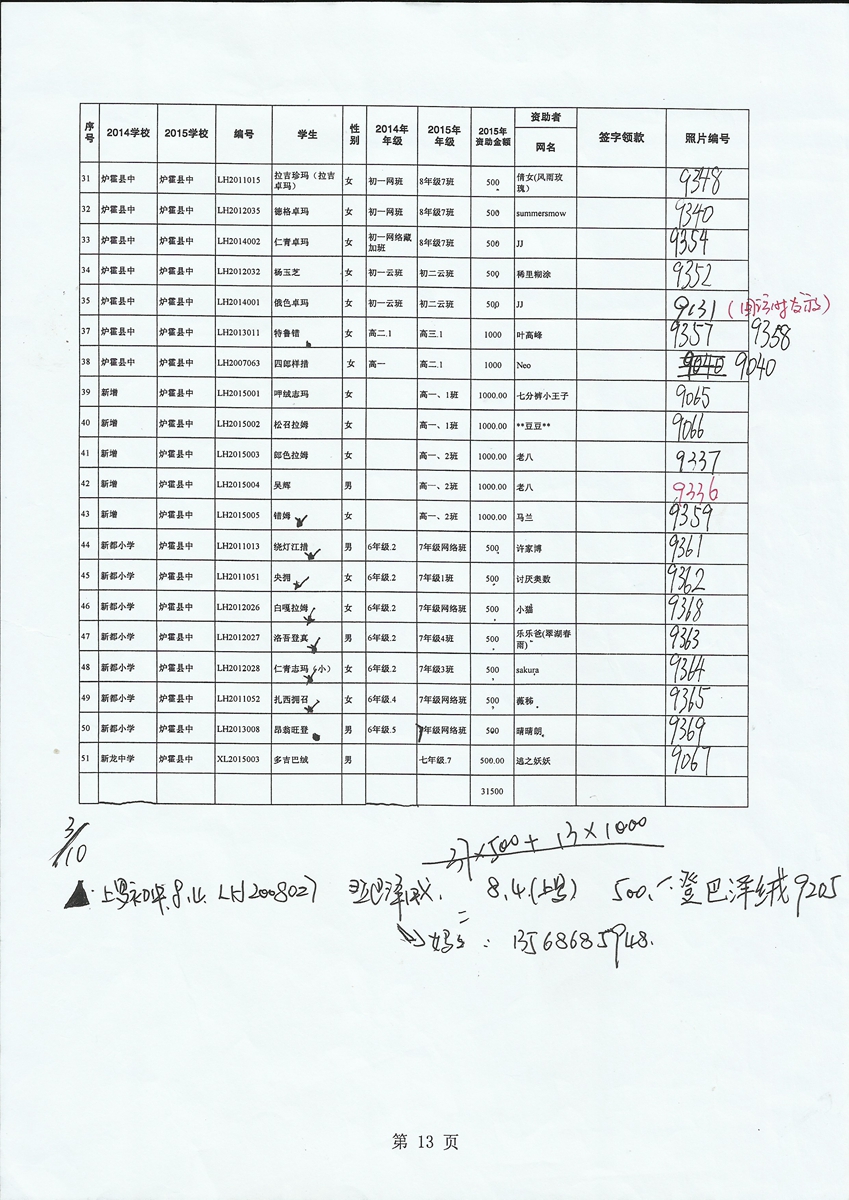 序号 2014学校 2015学校 编号 学生 性别 2014年年级 2015年年级 2015年资助金额 资助者 网名 签字领款 照片编号
31 炉霍县中 炉霍县中 LH2011015 拉吉珍玛（拉吉卓玛） 女 初一网班 8年级7班 500 倩女(风雨玫瑰) 9348
32 炉霍县中 炉霍县中 LH2012035 德格卓玛 女 初一网班 8年级7班 500 summersmow 9340
33 炉霍县中 炉霍县中 LH2014002 仁青卓玛 女 初一网络藏加班 8年级7班 500 JJ 9354
34 炉霍县中 炉霍县中 LH2012032 杨玉芝 女 初一云班 初二云班 500 稀里糊涂 9352
35 炉霍县中 炉霍县中 LH2014001 俄色卓玛 女 初一云班 初二云班 500 JJ 9131
37 炉霍县中 炉霍县中 LH2013011 特鲁错 女 高二.1 高三.1 1000 叶高峰 9357 9358
38 炉霍县中 炉霍县中 LH2007063 四郎样措 女 高一 高二.1 1000 Neo 9040 9040
39 新增 炉霍县中 LH2015001 呷绒志玛 女 高一、1班 1000.00 七分裤小王子 9065
40 新增 炉霍县中 LH2015002 松召拉姆 女 高一、1班 1000.00 **豆豆** 9066
41 新增 炉霍县中 LH2015003 郎色拉姆 女 高一、2班 1000.00 老八 9337
42 新增 炉霍县中 LH2015004 吴辉 男 高一、2班 1000.00 老八 9336
43 新增 炉霍县中 LH2015005 错姆 女 高一、2班 1000.00 马兰 9359
44 新都小学 炉霍县中 LH2011013 绕灯江措 男 6年级.2 7年级网络班 500 许家博 9361
45 新都小学 炉霍县中 LH2011051 央拥 女 6年级.2 7年级1班 500 讨厌奥数 9362
46 新都小学 炉霍县中 LH2012026 白嘎拉姆 女 6年级.2 7年级网络班 500 小猫 9368
47 新都小学 炉霍县中 LH2012027 洛吾登真 男 6年级.2 7年级4班 500 乐乐爸(翠湖春雨) 9363
48 新都小学 炉霍县中 LH2012028 仁青志玛（小） 女 6年级.2 7年级3班 500 sakura 9364
49 新都小学 炉霍县中 LH2011052 扎西拥召 女 6年级.4 7年级网络班 500 薇杮 9365
50 新都小学 炉霍县中 LH2013008 昂翁旺登 男 6年级.5 7年级网络班 500 晴晴朗 9369
51 新龙中学 炉霍县中 XL2015003 多吉巴绒 男 七年级.7 500.00 逃之妖妖 9067
31500
3/10 37×500+13×1000
LH2008027 8.4. 500. 登巴泽绒 9205
妈妈: 13568685948.
第 13 页